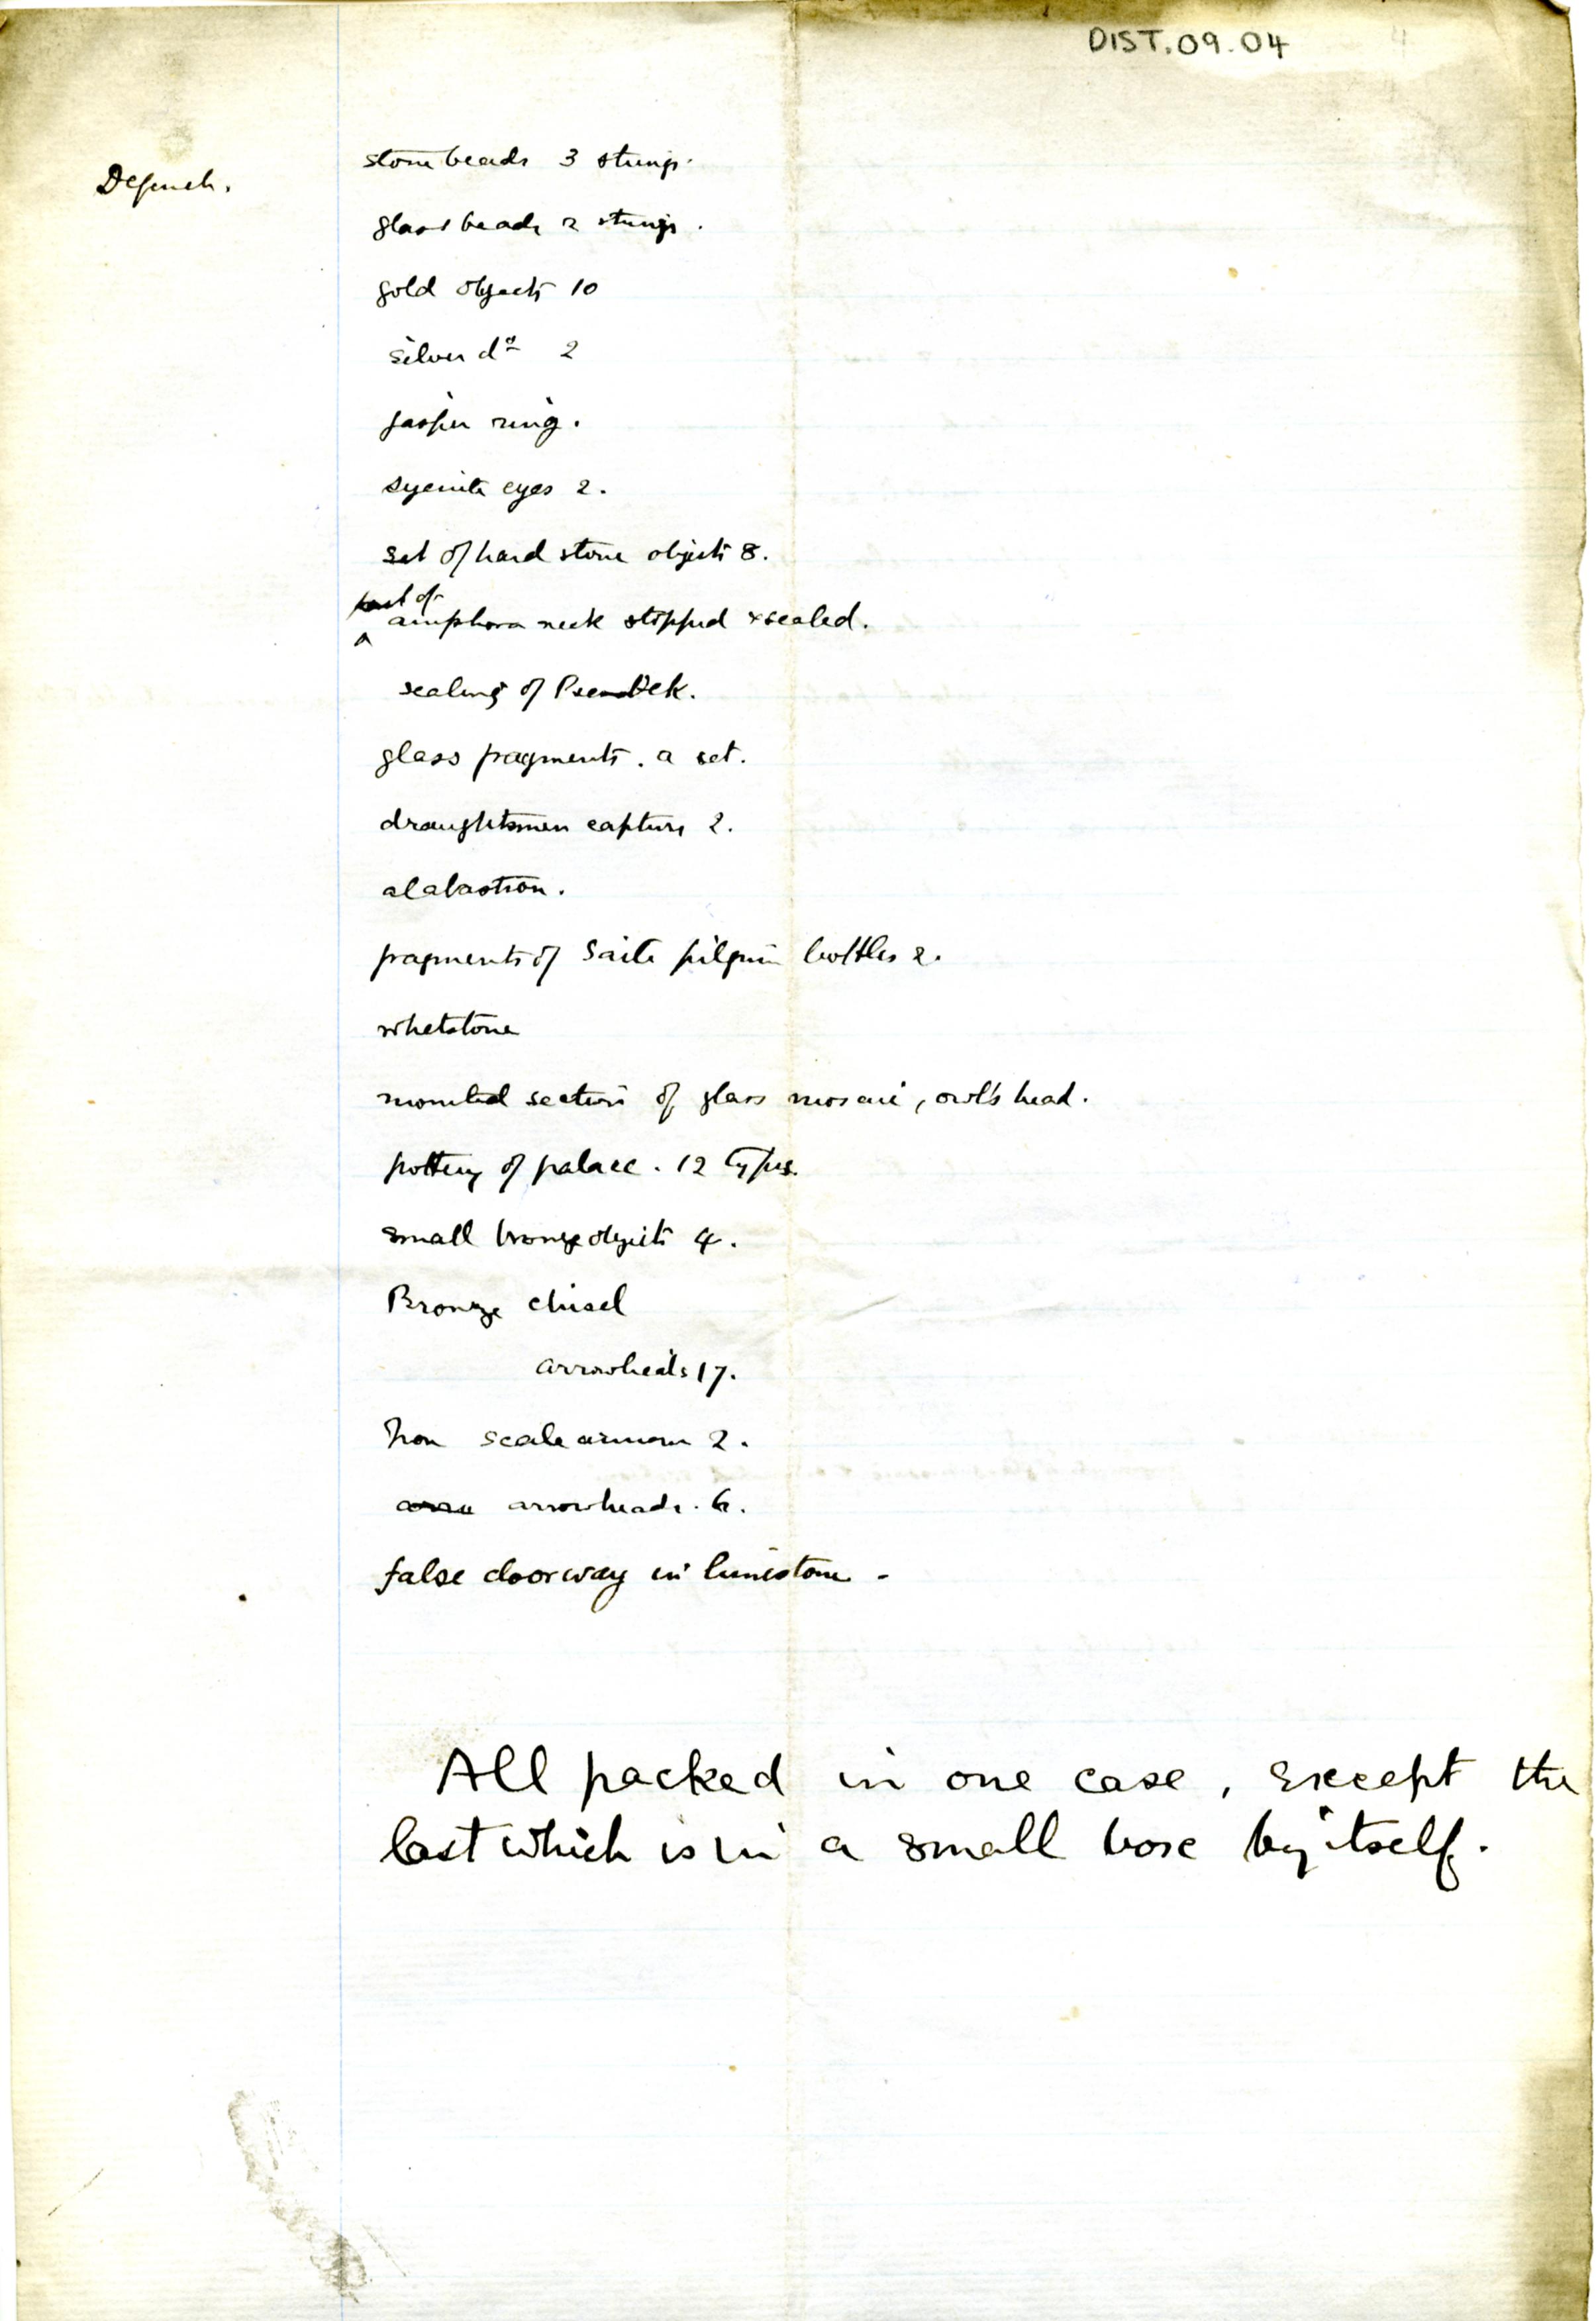 DIST.09.04
Defneh.
stone beads 3 strings.
glass beads 2 strings.
gold objects 10
silver do 2
jasper ring.
syenite eyes 2.
set of hard stone objects 8.
part of
amphora neck stopped & sealed.
sealing of Psemtek.
glass fragments. a set.
draughtsmen capture 2.
alabastron.
fragments of Saite pilgrim bottles 2.
whetstone
mounted section of glass mosaic, owl's head.
pottery of palace. 12 types.
small bronze objects 4.
Bronze chisel
arrowheads 17.
Iron scale armour 2.
arrowheads. 6.
false doorway in limestone -
All packed in one case, except the
last which is in a small box by itself.